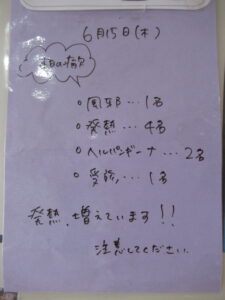 6月15日(木)
本日の病欠
○ 風邪…1名
○ 発熱…4名
○ ヘルパンギーナ…2名
○ 受診…1名
発熱、増えています!!
注意してください